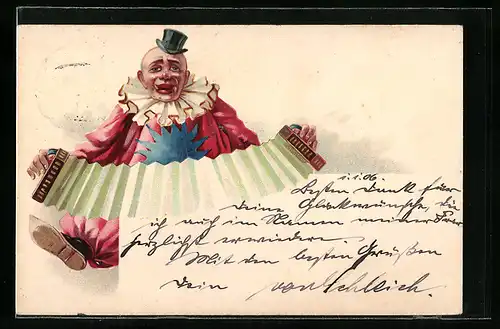 1.1.06.
Besten Dank für
Deine Glückwünsche, die
ich auch im Namen meiner
herzlichst erwiedere.
Mit den besten Grüßen
Dein von Schleich.